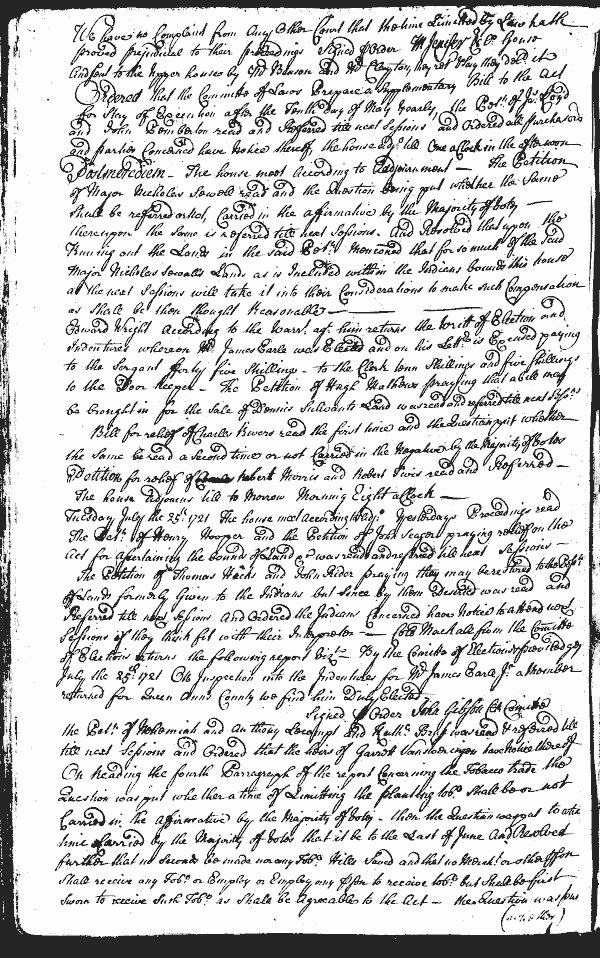 We have no Complaint from Any Other Court that the time Limitted by Law hath
proved prejudicial to their proceedings Signed p Order M Jenifer Cl. House
And sent to the Upper house by Mr Benson and Mr Clayton, they ret. Say they del. it
Ordered that the Committe of Laws Prepare a Supplementary Bill to the Act
for Stay of Execution after the Tenth day of May Yearly, the Pet.n of Ja. Lloyd
and John Pemberton read and Referred till next Sessions and Ordered all purchasors
and parties Concerned have Notice thereof, the house adj. till One a Clock in the afternoon
Postmeridiem - The house meet According to Adjournment - The Petition
of Major Nicholas Sewell read and the Question being put whether the Same
shall be referred or Not, Carried in the affirmative by the Majority of Votes -
thereupon the Same is referred till next Sessions. And Resolved that upon the
Running out the Lands in the said Pet.n Mentioned that for so much of the said
Major Nicholas Sewalls Lands as is Included within the Indians bounds this house
at the next Sessions will take it into their Considerations to make such Compensation
as shall be then thought Reasonable -
Edward Wright According to the Warr.t ag.t him returns the Writt of Election and
Indentures whereon Mr James Earle was Elected and on his Lett.r is Excused paying
to the Serjant fforty five Shillings - to the Clerk tenn Shillings and five shillings
to the Door keeper - The Petition of Hugh Mathews praying that a bill may
be brought in for the Sale of Dennis Sulivants Land was read and referred till next Sess.ns
Bill for relief of Charles Rivers read the first time and the Question put whether
the same be read a Second time or not Carried in the Negative by the Majority of Votes
Petition for relief of Robert Morris and Robert read and Referred -
The house adjourns till to Morrow Morning Eight a Clock -
Tuesday July the 25th 1721 The house meet According to Adj. Yesterdays Proceedings read
The Pet.n of Henry Hooper and the Petition of John Seager praying relief on the
Act for Ascertaining the bounds of Land &c was read and referred till next Sessions -
The Petition of Thomas Hicks and John Rider praying they may be restored to the
of Lands formerly Given to the Indians but since by them Deserted was read and
Referred till next Sessions And Ordered the Indians Concerned have Notice to attend next
Sessions if they think fit with their Interpreter - Colo Mackall from the Comitte
of Elections returns the following report Viz.t - By the Comitte of Elections & priviledges
July the 25th 1721 On Inspection into the Indentures for Mr James Earle Jr. a Member
returned for Queen Anns County we find him Duly Elected
Signed p Order John Gilpin Cl Comitte
the Pet.n of Nehemiah and Anthony Lecompt and Kath. was read & referred till
till next Sessions and Ordered that the heirs of Garrett Vansweringen have Notice thereof
On Reading the fourth Parragraph of the report Concerning the Tobacco trade the
Question was put whether a time of Limitting the planting tob.o shall be or not
Carried in the Affirmative by the Majority of Votes. then the Question was put to what
time Carried by the Majority of Votes that it be to the Last of June And Resolved
further that no Seconds be made nor any Tob.o Hills Saved and that no Merch.t or other pson
shall receive any Tob.o or Employ or Employ any pson to receive tob.o but shall be first
Sworn to receive Such Tob.o as shall be Agreeable to the Act - then Question was put
(whether)